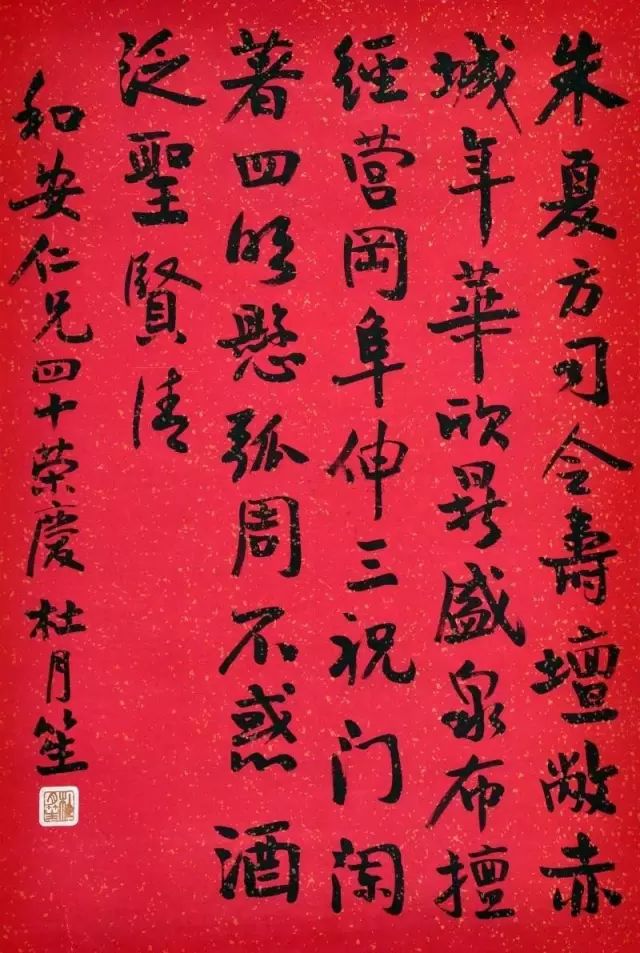 朱夏方司令壽壇敞赤
城年華欣鼎盛泉布擅
經營岡阜伸三祝门闌
著四明懸弧周不惑酒
泛聖賢清
和安仁兄四十荣慶 杜月笙